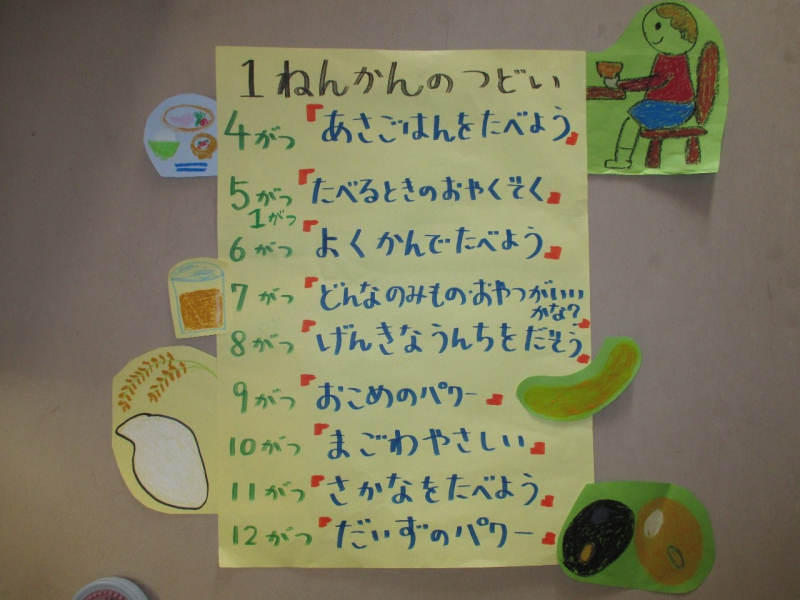 1ねんかんのつどい
4がつ「あさごはんをたべよう」
5がつ「たべるときのおやくそく」
1がつ
6がつ「よくかんでたべよう」
7がつ「どんなのみもの・おやつがいい
かな?」
8がつ「げんきなうんちをだそう」
9がつ「おこめのパワー」
10がつ「まごわやさしい」
11がつ「さかなをたべよう」
12がつ「だいずのパワー」